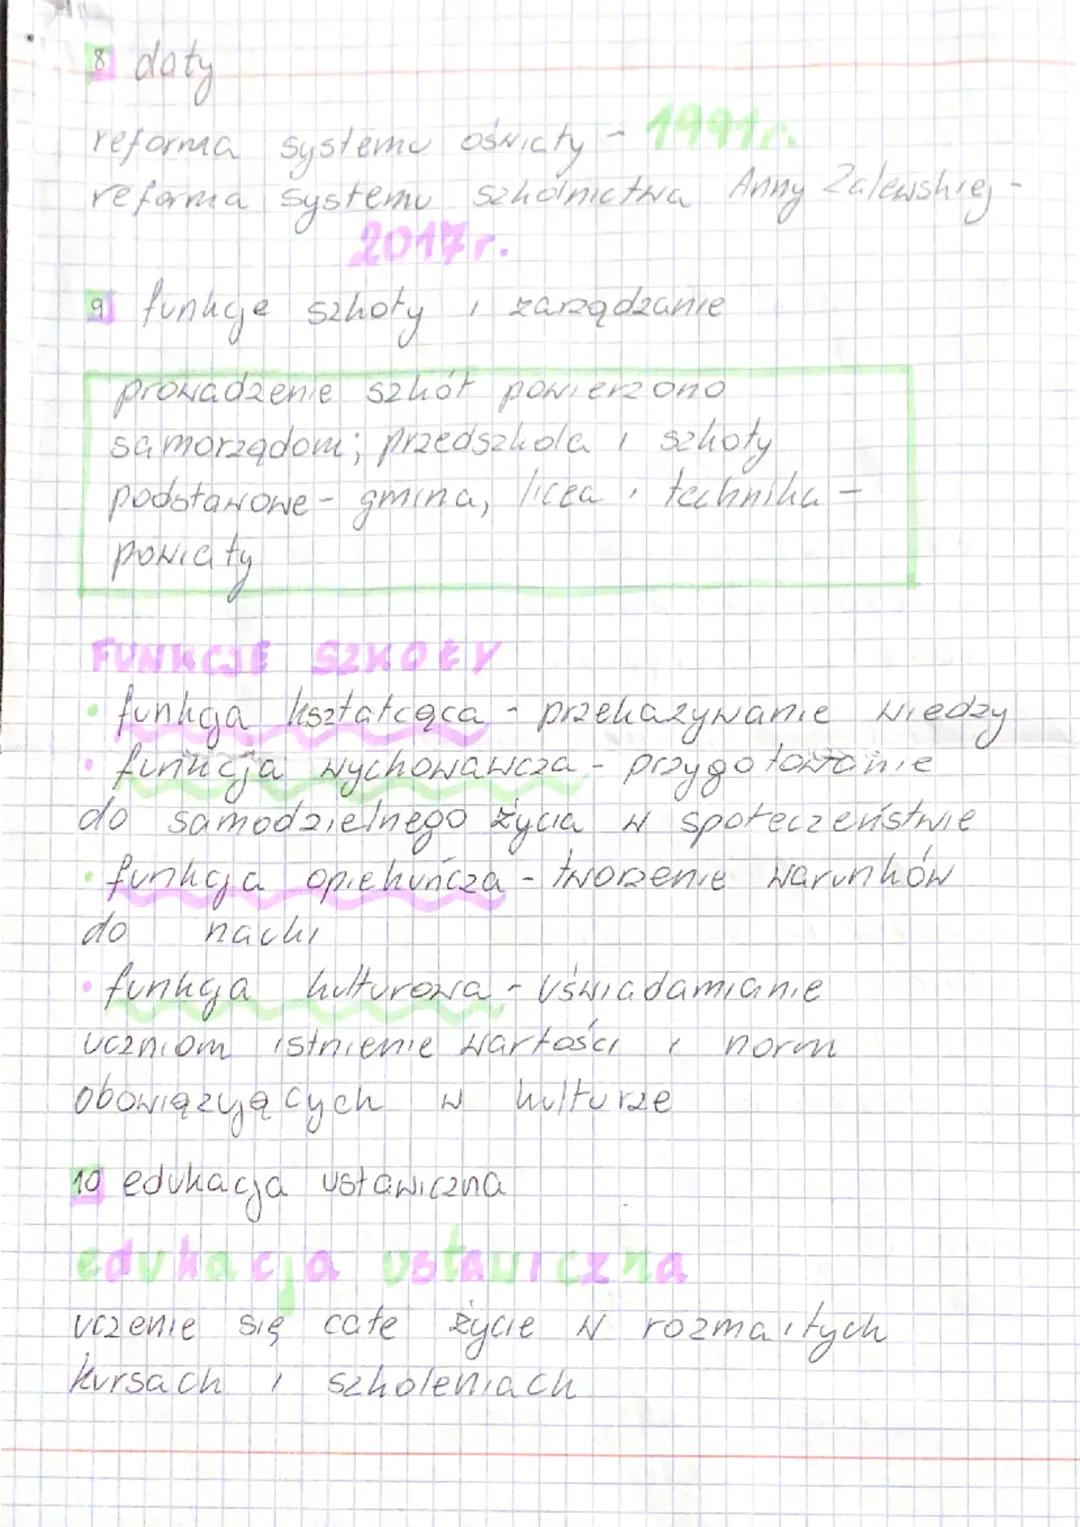 8 daty
reforma systemu oświaty - 1991r.
reforma systemu szkolnictwa Anny Zalewskiej -
2017r.
9 funkcje szkoły i zarządzanie
prowadzenie szkół powierzono
samorządom; przedszkola i szkoły
podstawowe - gmina, licea i technika -
powiaty
FUNKCJE SZKOŁY
• funkcja kształcąca - przekazywanie wiedzy
• funkcja wychowawcza - przygotowanie
do samodzielnego życia w społeczeństwie
• funkcja opiekuńcza - tworzenie warunków
do nauki
• funkcja kulturowa - uświadamianie
uczniom istnienie wartości i norm
obowiązujących w kulturze
10 edukacja ustawiczna
edukacja ustawiczna
uczenie się całe życie w rozmaitych
kursach i szkoleniach